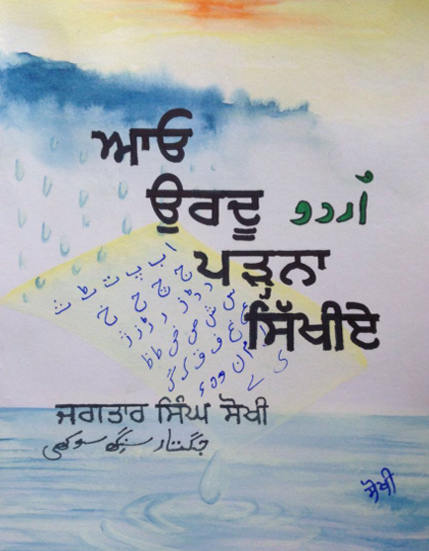 ਆਓ
ਉਰਦੂ اُردو
ਪੜ੍ਹਨਾ
ਸਿੱਖੀਏ
ا ب پ ت ٹ ث
ج چ ح خ
ਜਗਤਾਰ ਸਿੰਘ ਸੋਖੀ
جگتار سنگھ سوکھی
ਸੋਖੀ